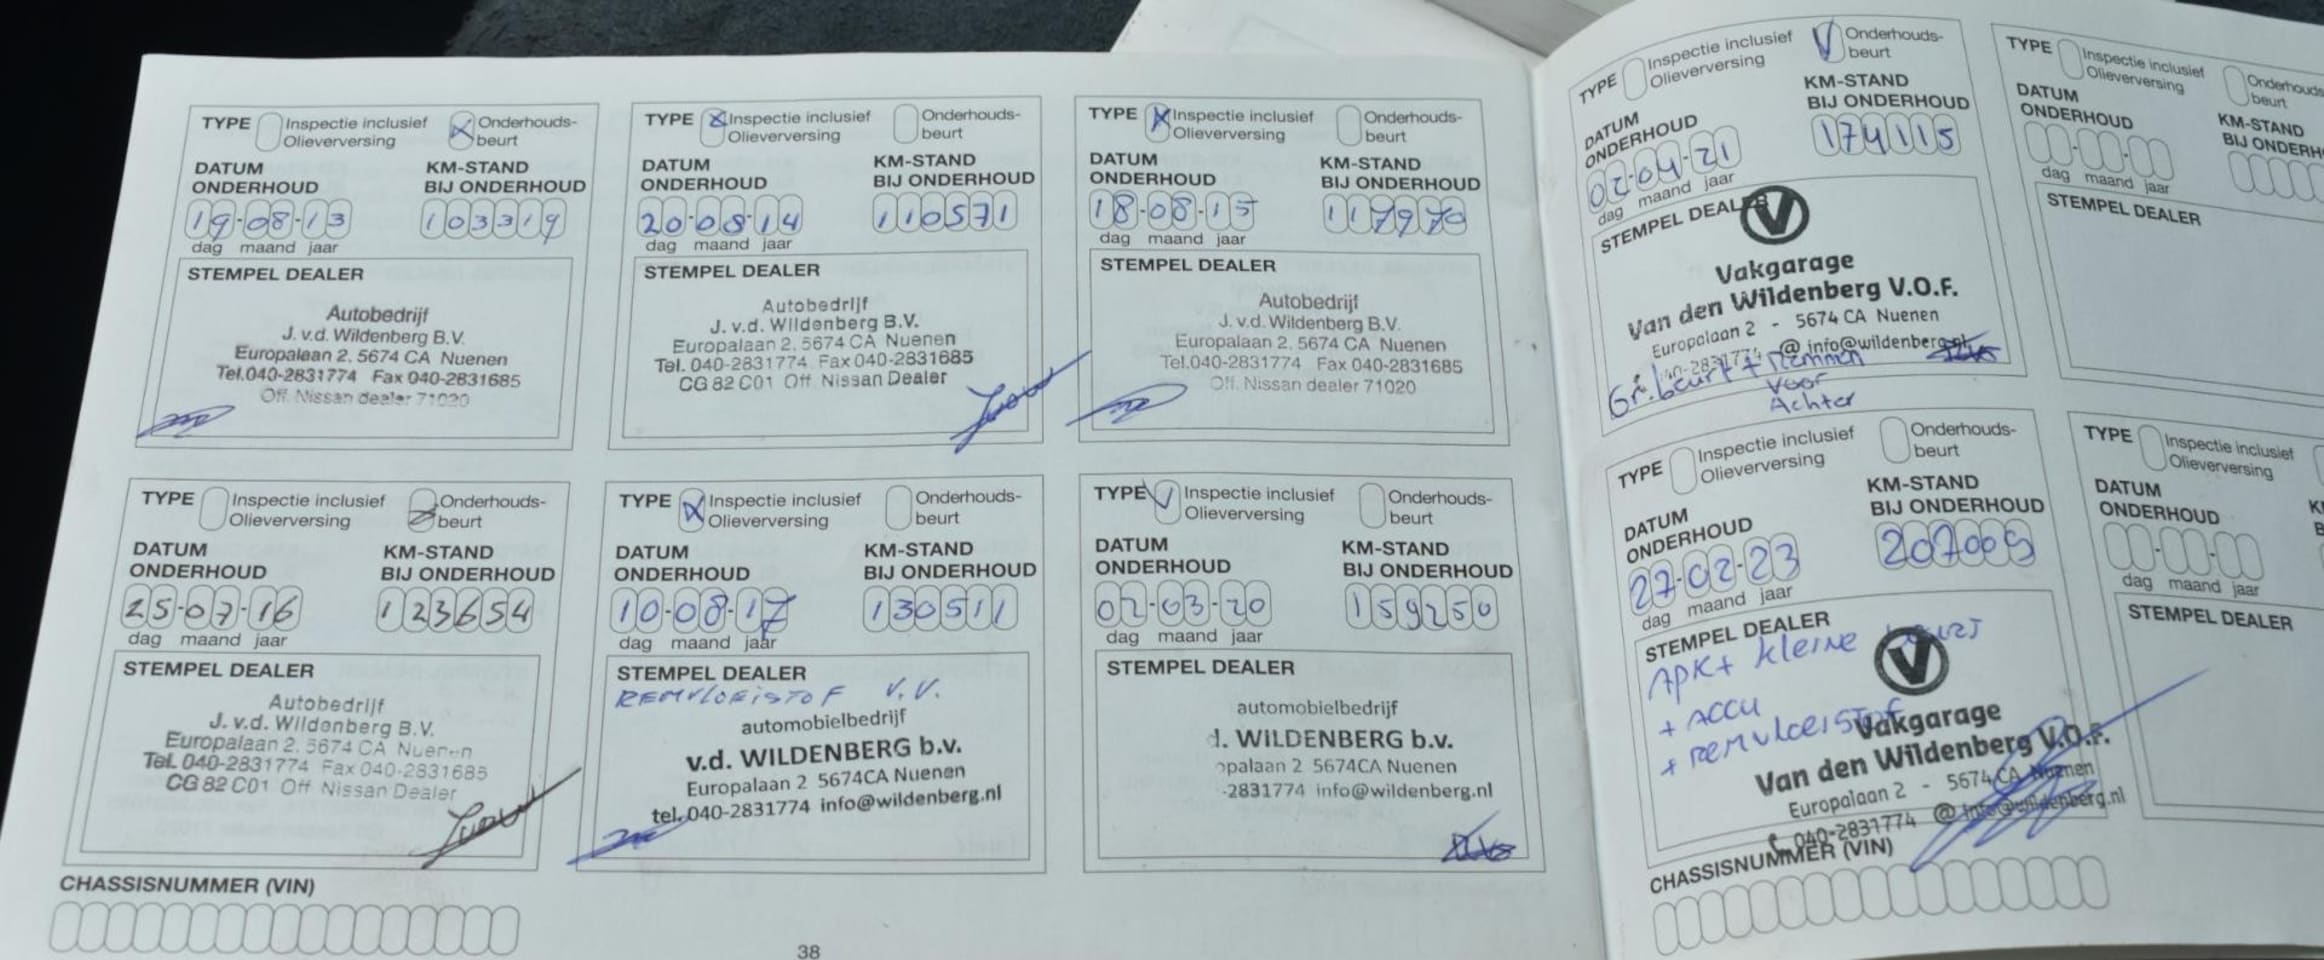 TYPE Inspectie inclusief Olieverversing Onderhouds-beurt
DATUM ONDERHOUD KM-STAND BIJ ONDERHOUD
19-08-13 103319
dag maand jaar
STEMPEL DEALER
Autobedrijf
J. v.d. Wildenberg B.V.
Europalaan 2. 5674 CA Nuenen
Tel.040-2831774 Fax 040-2831685
Off. Nissan dealer 71020
TYPE Inspectie inclusief Olieverversing Onderhouds-beurt
DATUM ONDERHOUD KM-STAND BIJ ONDERHOUD
20-08-14 110571
dag maand jaar
STEMPEL DEALER
Autobedrijf
J. v.d. Wildenberg B.V.
Europalaan 2. 5674 CA Nuenen
Tel. 040-2831774 Fax 040-2831685
CG 82 C01 Off Nissan Dealer
TYPE Inspectie inclusief Olieverversing Onderhouds-beurt
DATUM ONDERHOUD KM-STAND BIJ ONDERHOUD
18-08-15 117970
dag maand jaar
STEMPEL DEALER
Autobedrijf
J. v.d. Wildenberg B.V.
Europalaan 2. 5674 CA Nuenen
Tel.040-2831774 Fax 040-2831685
Off. Nissan dealer 71020
TYPE Inspectie inclusief Olieverversing Onderhouds-beurt
DATUM ONDERHOUD KM-STAND BIJ ONDERHOUD
25-07-16 123654
dag maand jaar
STEMPEL DEALER
Autobedrijf
J. v.d. Wildenberg B.V.
Europalaan 2. 5674 CA Nuenen
Tel. 040-2831774 Fax 040-2831685
CG 82 C01 Off Nissan Dealer
TYPE Inspectie inclusief Olieverversing Onderhouds-beurt
DATUM ONDERHOUD KM-STAND BIJ ONDERHOUD
10-08-17 130511
dag maand jaar
STEMPEL DEALER
REMVLOEISTOF V.V.
automobielbedrijf
v.d. WILDENBERG b.v.
Europalaan 2 5674CA Nuenen
tel. 040-2831774 info@wildenberg.nl
TYPE Inspectie inclusief Olieverversing Onderhouds-beurt
DATUM ONDERHOUD KM-STAND BIJ ONDERHOUD
02-03-20 159250
dag maand jaar
STEMPEL DEALER
automobielbedrijf
d. WILDENBERG b.v.
opalaan 2 5674CA Nuenen
-2831774 info@wildenberg.nl
CHASSISNUMMER (VIN)
38
TYPE Inspectie inclusief Olieverversing Onderhouds-beurt
DATUM ONDERHOUD KM-STAND BIJ ONDERHOUD
02-04-21 174115
dag maand jaar
STEMPEL DEALER
Vakgarage
Van den Wildenberg V.O.F.
Europalaan 2 - 5674 CA Nuenen
40-2831774 @ info@wildenberg.nl
Gr. beurt + Remmen
Voor
Achter
TYPE Inspectie inclusief Olieverversing Onderhouds-beurt
DATUM ONDERHOUD KM-STAND BIJ ONDERH
dag maand jaar
STEMPEL DEALER
TYPE Inspectie inclusief Olieverversing Onderhouds-beurt
DATUM ONDERHOUD KM-STAND BIJ ONDERHOUD
27-02-23 207009
dag maand jaar
STEMPEL DEALER
APK + kleine beurt
+ Accu
+ remvloeistof
Vakgarage
Van den Wildenberg V.O.F.
Europalaan 2 - 5674 CA Nuenen
040-2831774 @ info@wildenberg.nl
CHASSISNUMMER (VIN)
TYPE Inspectie inclusief Olieverversing
DATUM ONDERHOUD
dag maand jaar
STEMPEL DEALER